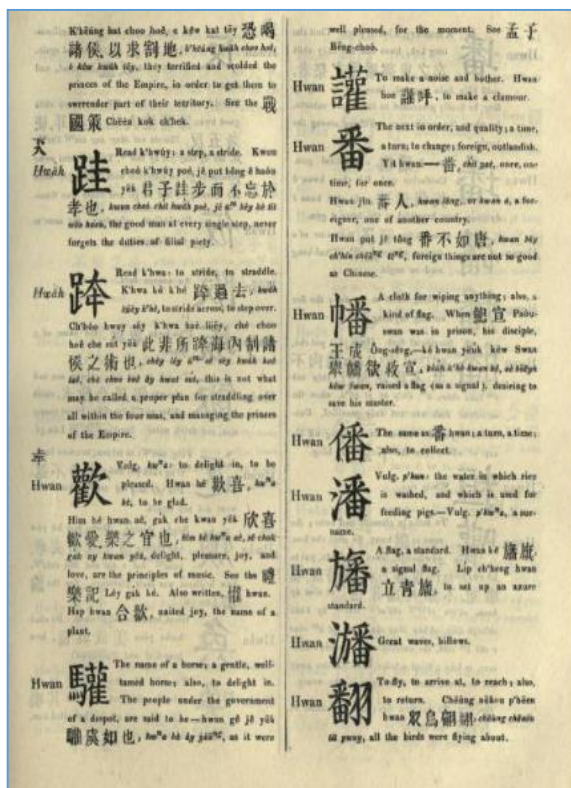 K'héüng hat choo hoê, e kêw kat tēy 恐喝
諸侯, 以求割地, k'héüng hwǎh choo hoê,
ê kêw kwăh tēy, they terrified and scolded the
princes of the Empire, in order to get them to
surrender part of their territory. See the 戰
國策 Chèén kok ch'hek.
Hwǎh 跬 Read k'hwúy: a step, a stride. Kwun
choó k'hwúy poē, jê put bông ê haòu
yěâ 君子跬步而不忘於
孝也,
the good man at every single step, never
forgets the duties of filial piety.
Hwǎh 跨 Read k'hwa: to stride, to straddle.
K'hwa kò k'hè 跨過去,
to stride across, to step over.
Ch'hóo hwuy séy k'hwa haé lüēy, chè choo
hoê che sút yěâ 此非所跨海內制諸
侯之術也,
this is not what
may be called a proper plan for straddling over
all within the four seas, and managing the princes
of the Empire.
Hwan 歡 Vulg. hwⁿa: to delight in, to be
pleased. Hwan hé 歡喜, hwⁿa
hé, to be glad.
Him hé hwan aè, gak che kwan yěâ 欣喜
歡愛, 樂之官也,
delight, pleasure, joy, and
love, are the principles of music. See the 禮
樂記 Léy gak ké. Also written, 懽 hwan.
Hap hwan 合歡, united joy, the name of a
plant.
Hwan 驩 The name of a horse; a gentle, well-
tamed horse; also, to delight in.
The people under the government
of a despot, are said to be—hwan gê jê yěâ
驩虞如也, as it were
well pleased, for the moment. See 孟子
Bēng-choó.
Hwan 讙 To make a noise and bother. Hwan
hoe 讙呼, to make a clamour.
Hwan 番 The next in order, and quality; a time,
a turn; to change; foreign, outlandish.
Yit hwan 一番, chit pat, once, one
time, for once.
Hwan jîn 番人, hwan lâng, or hwan á, a for-
eigner, one of another country.
Hwan put jê tông 番不如唐,
foreign things are not so good
as Chinese.
Hwan 幡 A cloth for wiping anything; also, a
kind of flag. When 鮑宣 Paòu-
swan was in prison, his disciple,
王成 Ông-sêng,—ké hwan yëuk kéw Swan
舉幡欲救宣,
raised a flag (as a signal), desiring to
save his master.
Hwan 僠 The same as 番 hwan; a turn, a time;
also, to collect.
Hwan 潘 Vulg. p'hun: the water in which rice
is washed, and which is used for
feeding pigs.—Vulg. p'hwⁿa, a sur-
name.
Hwan 旛 A flag, a standard. Hwan kê 旛旗,
a signal flag. Lip ch'heng hwan
立青旛, to set up an azure
standard.
Hwan Great waves, billows.
Hwan 翻 To fly, to arrive at, to reach; also,
to return. Chèùng neáou p'hëen
hwan 眾鳥翩翻,
all the birds were flying about.